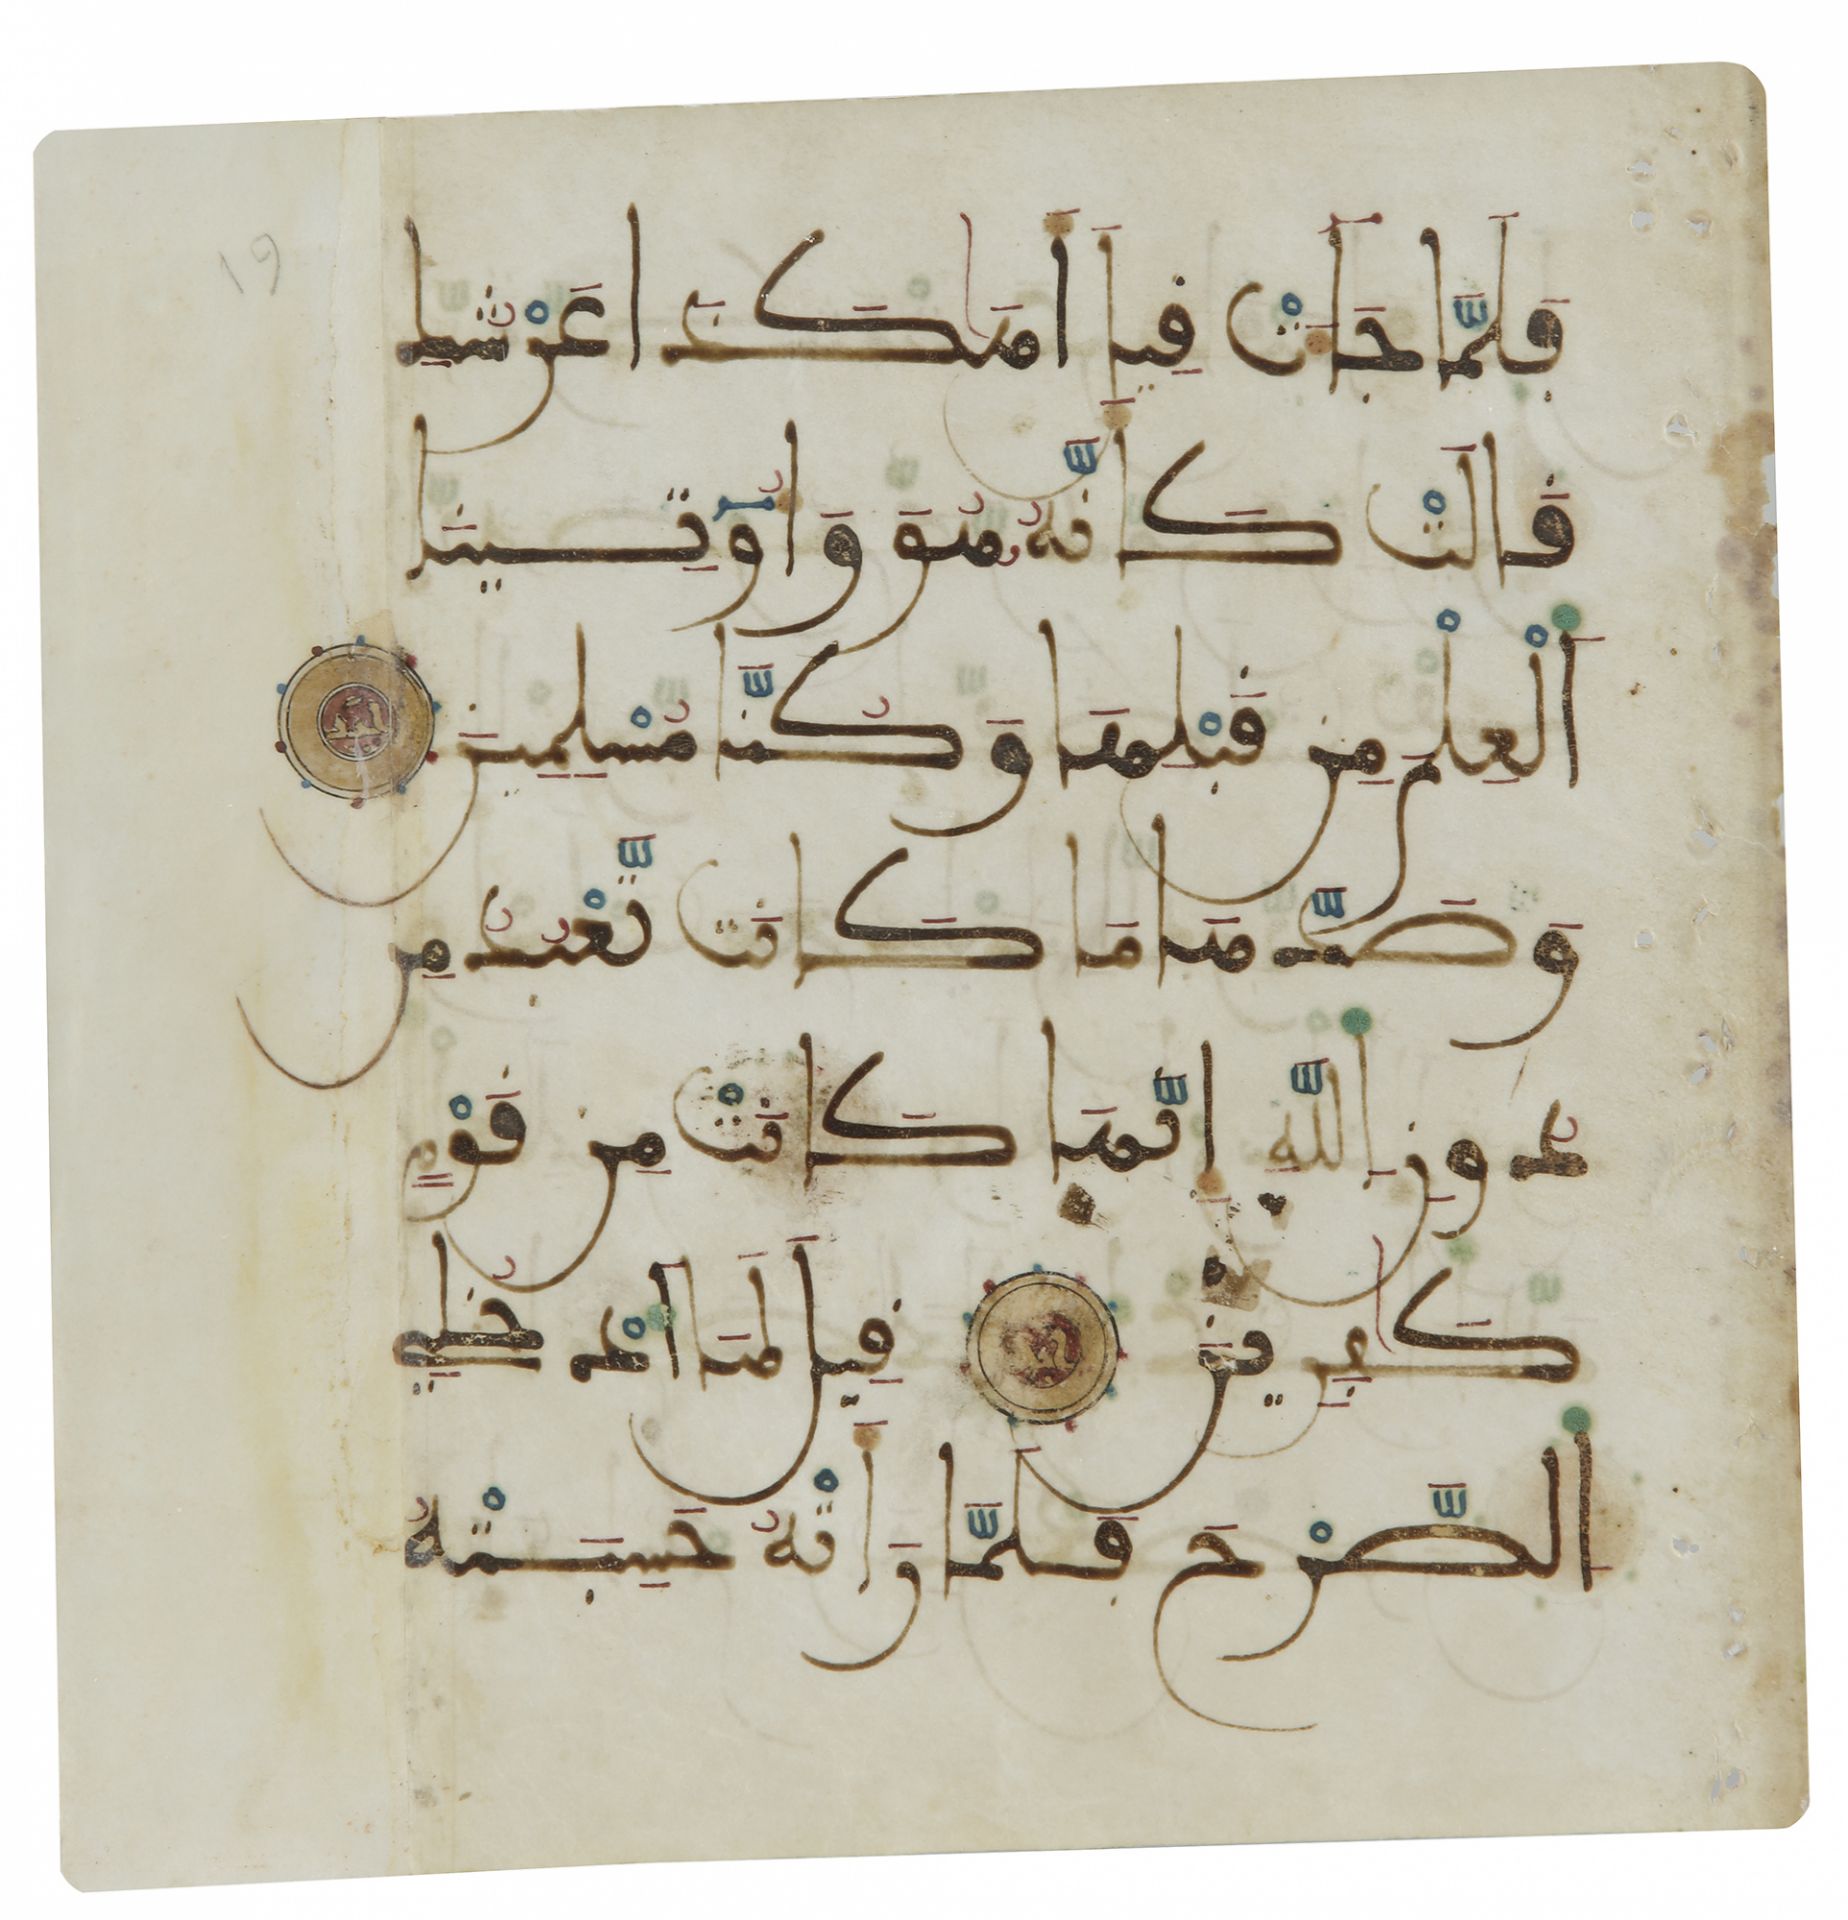 فَلَمَّا جَآءَتْ قِيلَ أَهَٰكَذَا عَرْشُكِ
قَالَتْ كَأَنَّهُۥ هُوَ وَأُوتِينَا
ٱلْعِلْمَ مِن قَبْلِهَا وَكُنَّا مُسْلِمِينَ
وَصَدَّهَا مَا كَانَت تَّعْبُدُ مِن
دُونِ ٱللَّهِ إِنَّهَا كَانَتْ مِن قَوْمٍ
كَٰفِرِينَ قِيلَ لَهَا ٱدْخُلِي
ٱلصَّرْحَ فَلَمَّا رَأَتْهُ حَسِبَتْهُ
19